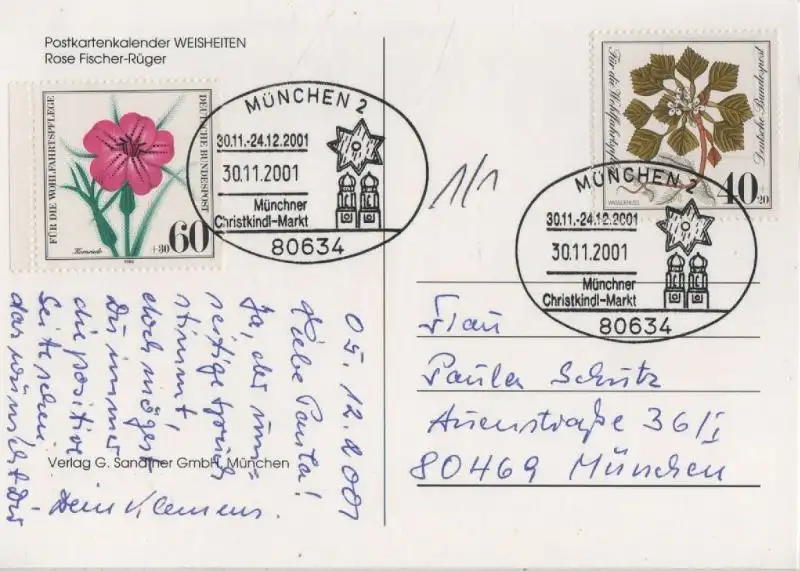 Postkartenkalender WEISHEITEN
Rose Fischer-Rüger
FÜR DIE WOHLFAHRTSPFLEGE
DEUTSCHE BUNDESPOST
+30 60
Kornrade
1980
MÜNCHEN 2
30.11.-24.12.2001
30.11.2001
Münchner
Christkindl-Markt
80634
1/1
Für die Wohlfahrtspflege
Deutsche Bundespost
WASSERNUSS
40+20
MÜNCHEN 2
30.11.-24.12.2001
30.11.2001
Münchner
Christkindl-Markt
80634
05.12.2001
Liebe Paula!
Ja, der um=
seitige Spruch
stimmt,
doch mögest
Du immer
die positive
Seite sehen
das wünscht Dir
Dein Klemens.
Verlag G. Sandtner GmbH, München
Frau
Paula Schütz
Auenstraße 36/I
80469 München